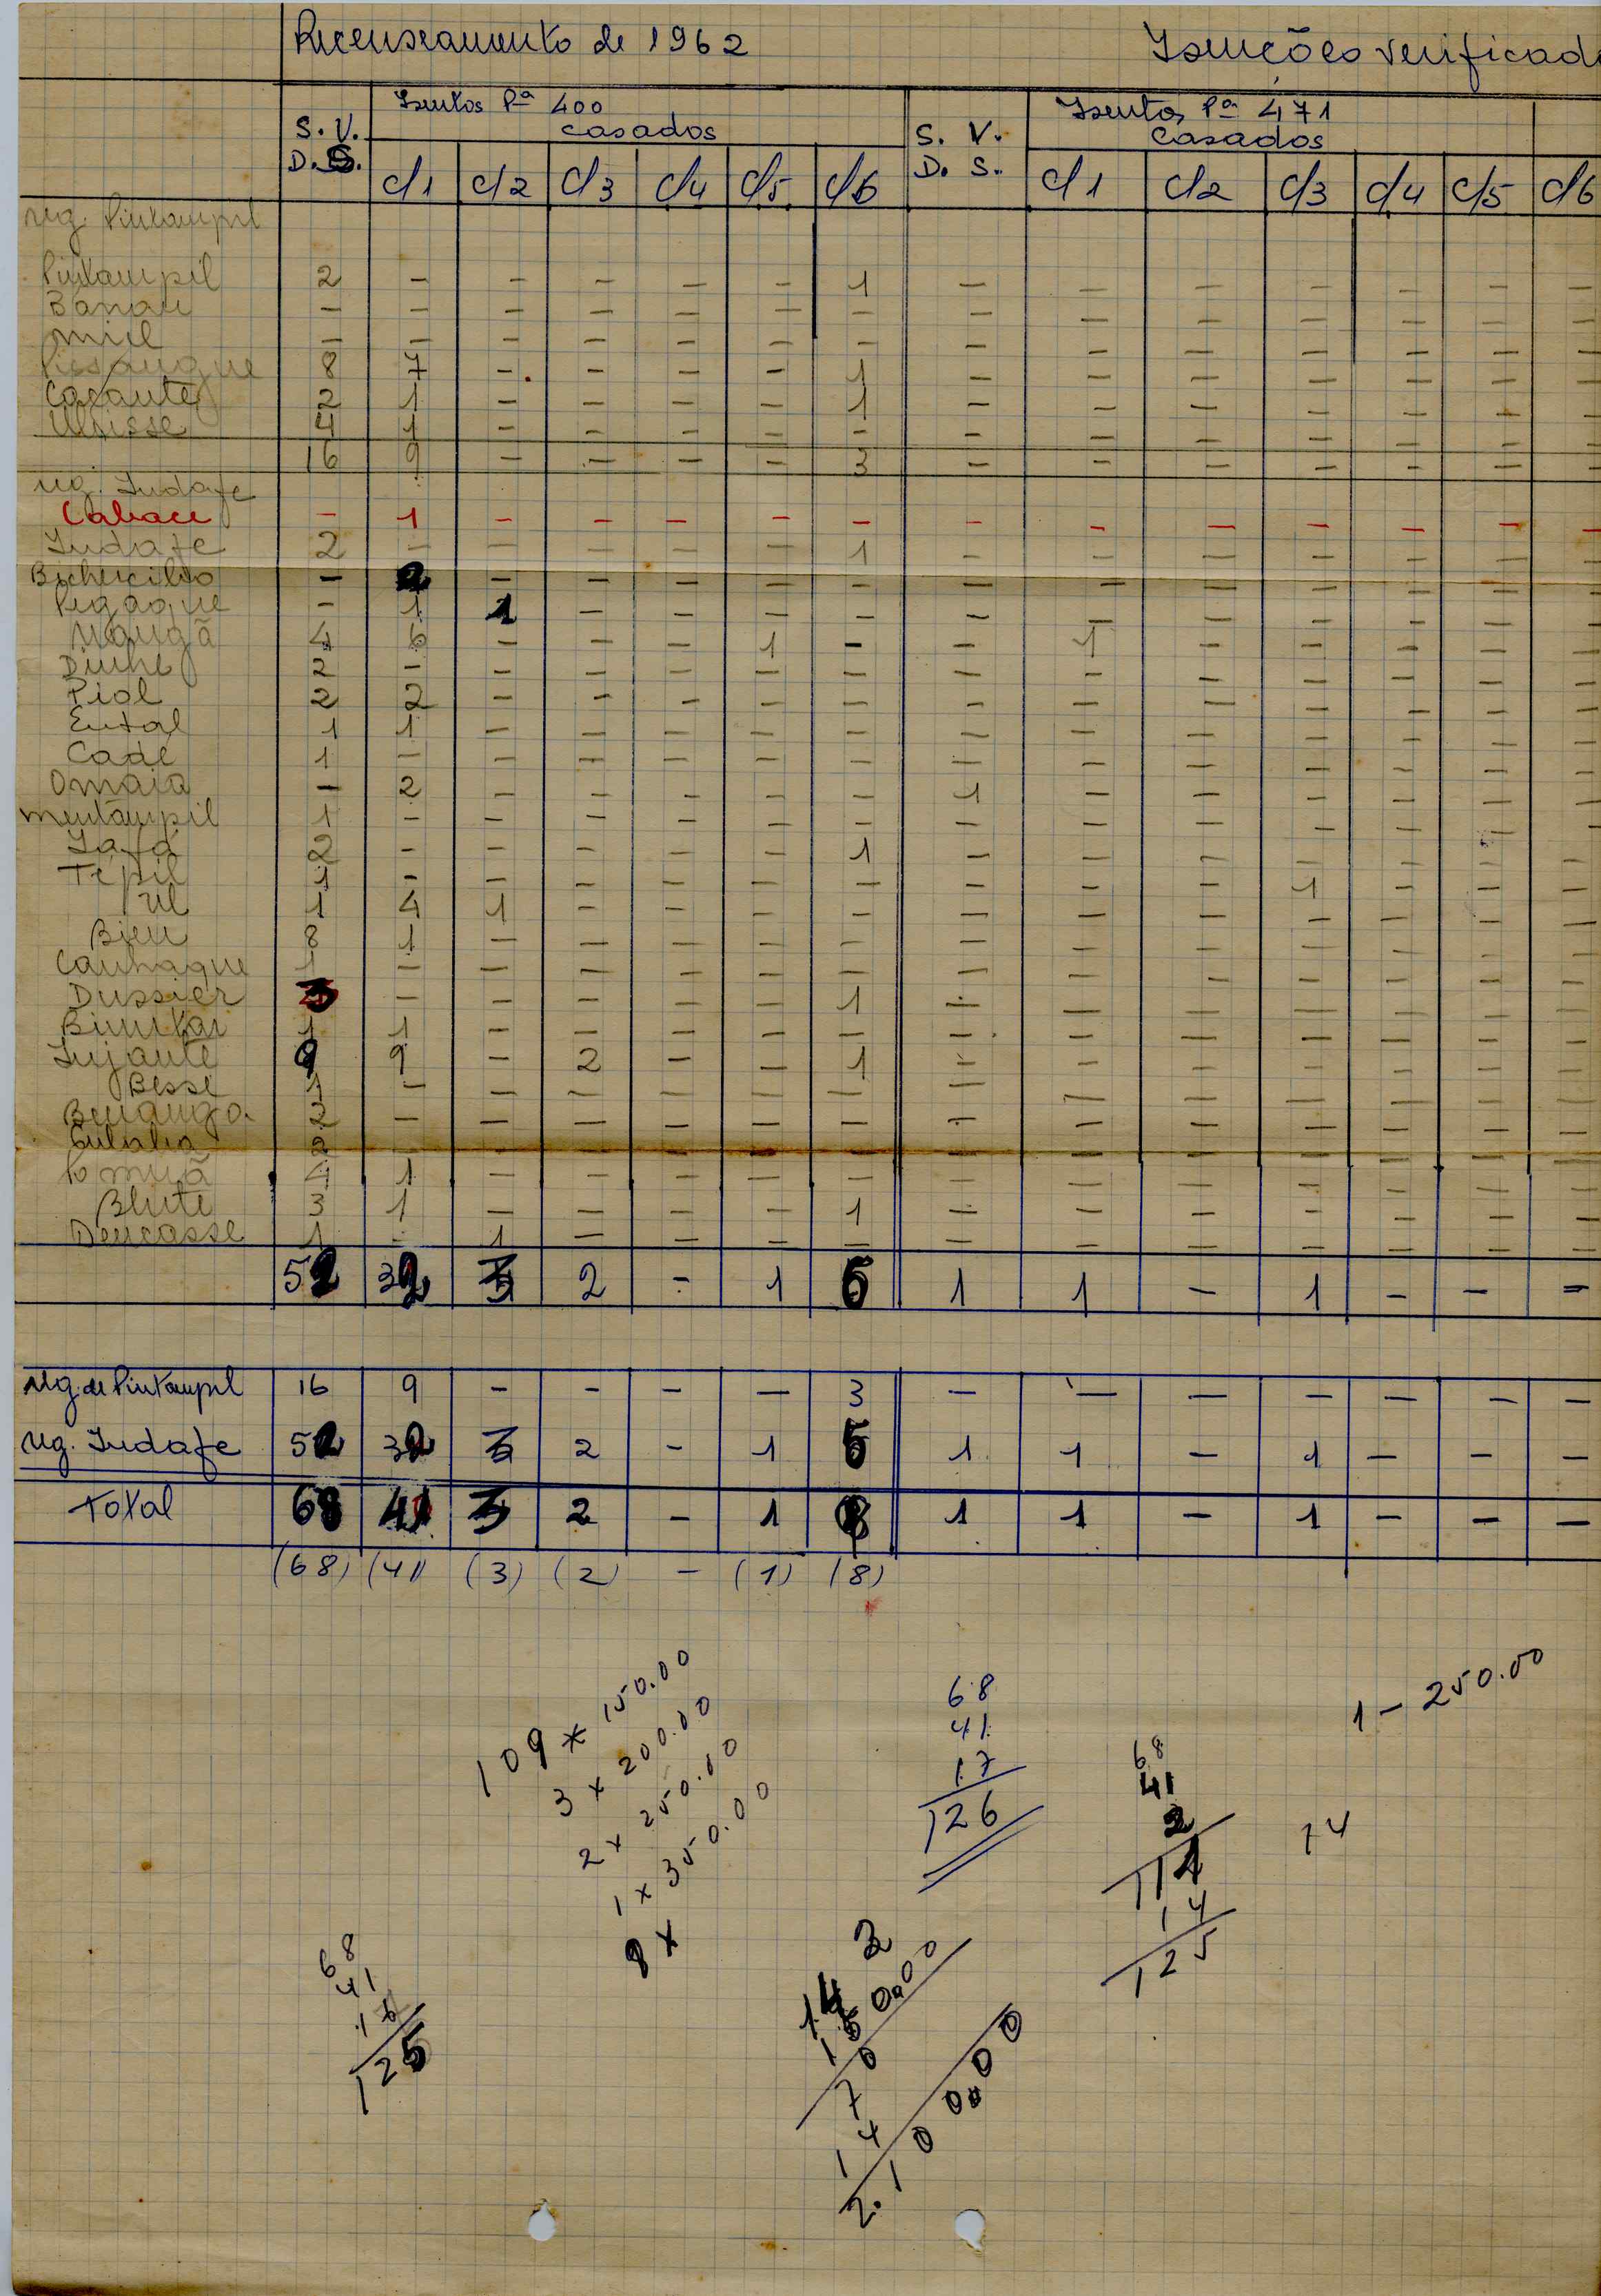 Recenseamento de 1962 Isenções verificad
Isentos Pª 400 Isentos Pª 471
S. V. casados S. V. casados
D. S. c/1 c/2 c/3 c/4 c/5 c/6 D. S. c/1 c/2 c/3 c/4 c/5 c/6
reg. Pintampil
Pintampil 2 - - - - - 1 - - - - - - -
Banau - - - - - - - - - - - - - -
Miel - - - - - - - - - - - - - -
8 7 - - - - 1 - - - - - - -
Casante 2 1 - - - - 1 - - - - - - -
4 1 - - - - - - - - - - - -
16 9 - - - - 3 - - - - - - -
reg. Indafe
Cabacu - 1 - - - - - - - - - - - -
Indafe 2 - - - - - 1 - - - - - - -
- 2 - - - - - - - - - - - -
- 1 1 - - - - - - - - - - -
Nangã 4 6 - - - 1 - - 1 - - - - -
Dinhe 2 - - - - - - - - - - - - -
Piol 2 2 - - - - - - - - - - - -
Ental 1 1 - - - - - - - - - - - -
Cade 1 - - - - - - - - - - - - -
Omaia - 2 - - - - - 1 - - - - - -
Mentampil 1 - - - - - - - - - - - - -
Iafá 2 - - - - - 1 - - - - - - -
Tépil 1 - - - - - - - - - 1 - - -
1 4 1 - - - - - - - - - - -
Bieu 8 1 - - - - - - - - - - - -
Canhaque 1 - - - - - - - - - - - - -
Dussier 3 - - - - - 1 - - - - - - -
1 1 - - - - - - - - - - - -
Injante 9 9 - 2 - - 1 - - - - - - -
Besse 1 - - - - - - - - - - - - -
Benanga 2 - - - - - - - - - - - - -
2 - - - - - - - - - - - - -
4 1 - - - - - - - - - - - -
Blute 3 1 - - - - 1 - - - - - - -
Dencasse 1 - 1 - - - - - - - - - - -
52 32 3 2 - 1 5 1 1 - 1 - - -
reg. de Pintampil 16 9 - - - - 3 - - - - - - -
reg. Indafe 52 32 3 2 - 1 5 1 1 - 1 - - -
Total 68 41 3 2 - 1 8 1 1 - 1 - - -
(68) (41) (3) (2) - (1) (8)
109 x 150.00
3 x 200.00
2 x 250.00
1 x 350.00
8 x
68
41
17
126
1 - 250.00
68
41
2
111
14
125
14
68
41
125